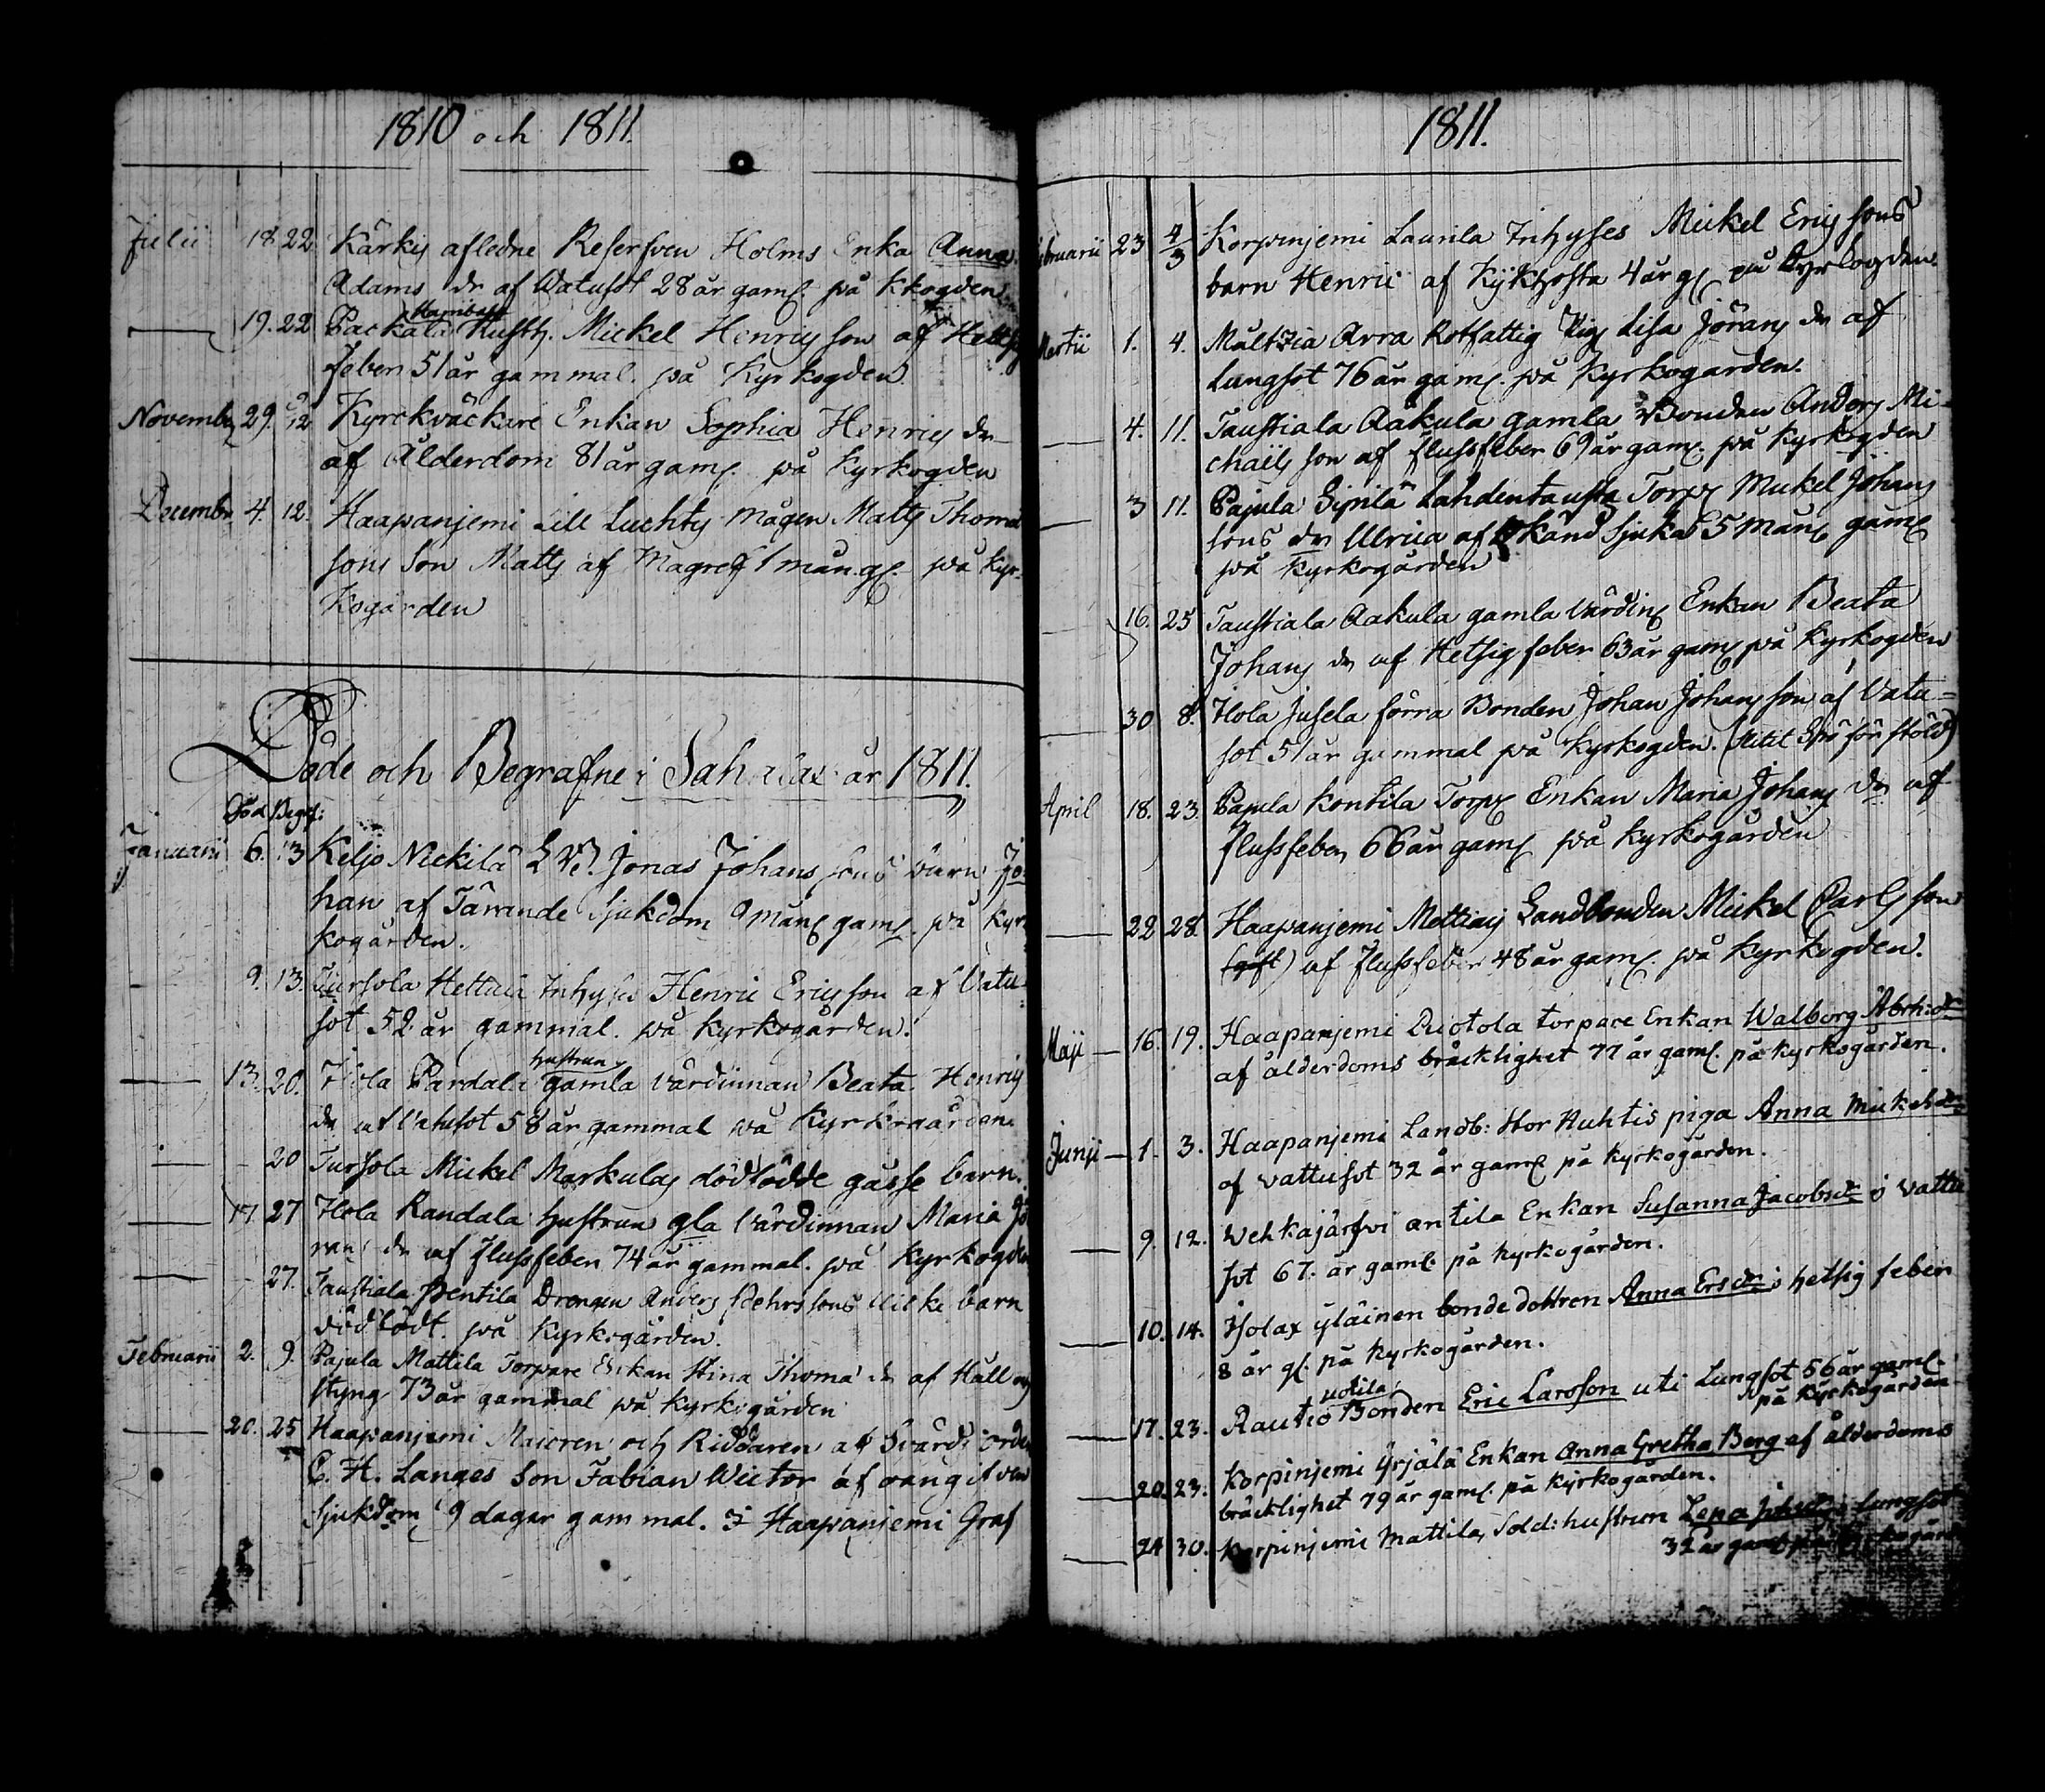 1810 och 1811.
Julii 18 22 Kärkis afledne Reserfven Holms Enka Anna
Adams dr af Watusot 28 år gaml. på Kkogden
19. 22 Packala Mickel Henrics son af Hetsig
feber 51 år gammal. på Kyrkogden
Novembr 29. 12 Kyrckväckare Enkan Sophia Henrics dr
af Ålderdom 81 år gaml. på Kyrkogden
Decembr 4. 12. Haapanjemi Lill Luchtis mågen Matts Thomæ
sons Son Matts af Magref 1 mån. gl. på Kyr-
kogården
Döde och Begrafne i Sahalax år 1811.
Död Begr:
Januarii 6. 13 Keljo Nickilä Jonas Johans sons barn Jo
han af Tärande Sjukdom 9 mån gaml. på Kyr
kogården.
9. 13. Tursola Hettula Inhyses Henric Ericsson af Vatu-
sot 52 år gammal. på Kyrkogården.
hustrun
13. 20. Ihola Pardala gamla Värdinnan Beata Henrics
dr af Vatusot 58 år gammal på Kyrkogården
20 Tursola Mickel Markulas dödfödde gåsse barn.
17. 27 Ihola Randala hustrun gla Värdinnan Maria Jö
rans dr af Flussfeber 74 år gammal. på Kyrkogden
27. Taustiala Pentila Drengen Anders Pehrssons barn
dödfödt. på Kyrkogården.
Februarii 2. 9. Pajula Mattila Torpare Enkan Stina Thomæ dr af Håll och
styng 73 år gammal på Kyrkogården
20. 25 Haapanjemi Majoren och Riddaren af Svärds orden
C. H. Langes Son Fabian Wictor af oangifven
Sjukdom 9 dagar gammal. i Haapanjemi Graf
1811.
Februarii 23 4/3 Korpinjemi Laurila Inhyses Mickel Erics sons
barn Henric af Kykhosta 4 år gl på Kyrkogden.
Martii 1. 4. Multzia Arra Rotfattig Pig Lisa Jörans dr af
Lungsot 76 år gaml. på Kyrkogården.
4. 11. Taustiala Aakula gamla Bonden Anders Mi-
chails son af Flussfeber 69 år gaml. på Kyrkogden
3 11. Pajula Sipilä Lahdentausta Torps Mickel Johans
sons dr Ulrica af okänd Sjukd 5 Mån gaml
på Kyrkogården
16. 25 Taustiala Aakula gamla Värdin Enkan Beata
Johans dr af Hetsig feber 63 år gaml på Kyrkogden
30 8. Ihola Jusela förra Bonden Johan Johans son af Vatu-
sot 51 år gammal på Kyrkogden. (Slitit Spö för stöld)
April 18. 23. Pajula Kontila Torps Enkan Maria Johans dr af
Flussfeber 66 år gaml på Kyrkogården
22 28. Haapanjemi Mattiais Landbonden Mickel Carlsson
(gift) af Flussfeber 48 år gaml. på Kyrkogden.
Maji 16. 19. Haapanjemi Puotola torpare Enkan Walborg Abrh:dr
af ålderdoms bräcklighet 77 år gaml. på Kyrkogården.
Junji 1. 3. Haapanjemi Landb: Stor Huhtis piga Anna Mickelsdr
af vattusot 32 år gaml på Kyrkogården.
9. 12. Wehkajärfvi antila Enkan Susanna Jacobsdr i vattu
sot 67. år gaml. på Kyrkogården.
10. 14. Isolax yläinen bonde dottren Anna Ersdr i hetsig feber
8 år gl. på Kyrkogården.
uotila
17. 23. Rautio Bonden Eric Larsson uti Lungsot 56 år gaml.
på Kyrkogården
20. 23. Korpinjemi Yrjälä Enkan Anna Gretha Berg af ålderdoms
bräcklighet 79 år gaml. på Kyrkogården.
24 30. Korpinjemi Mattila, Sold: hustrun Lena i lungsot
32 år gaml på Kyrkogård